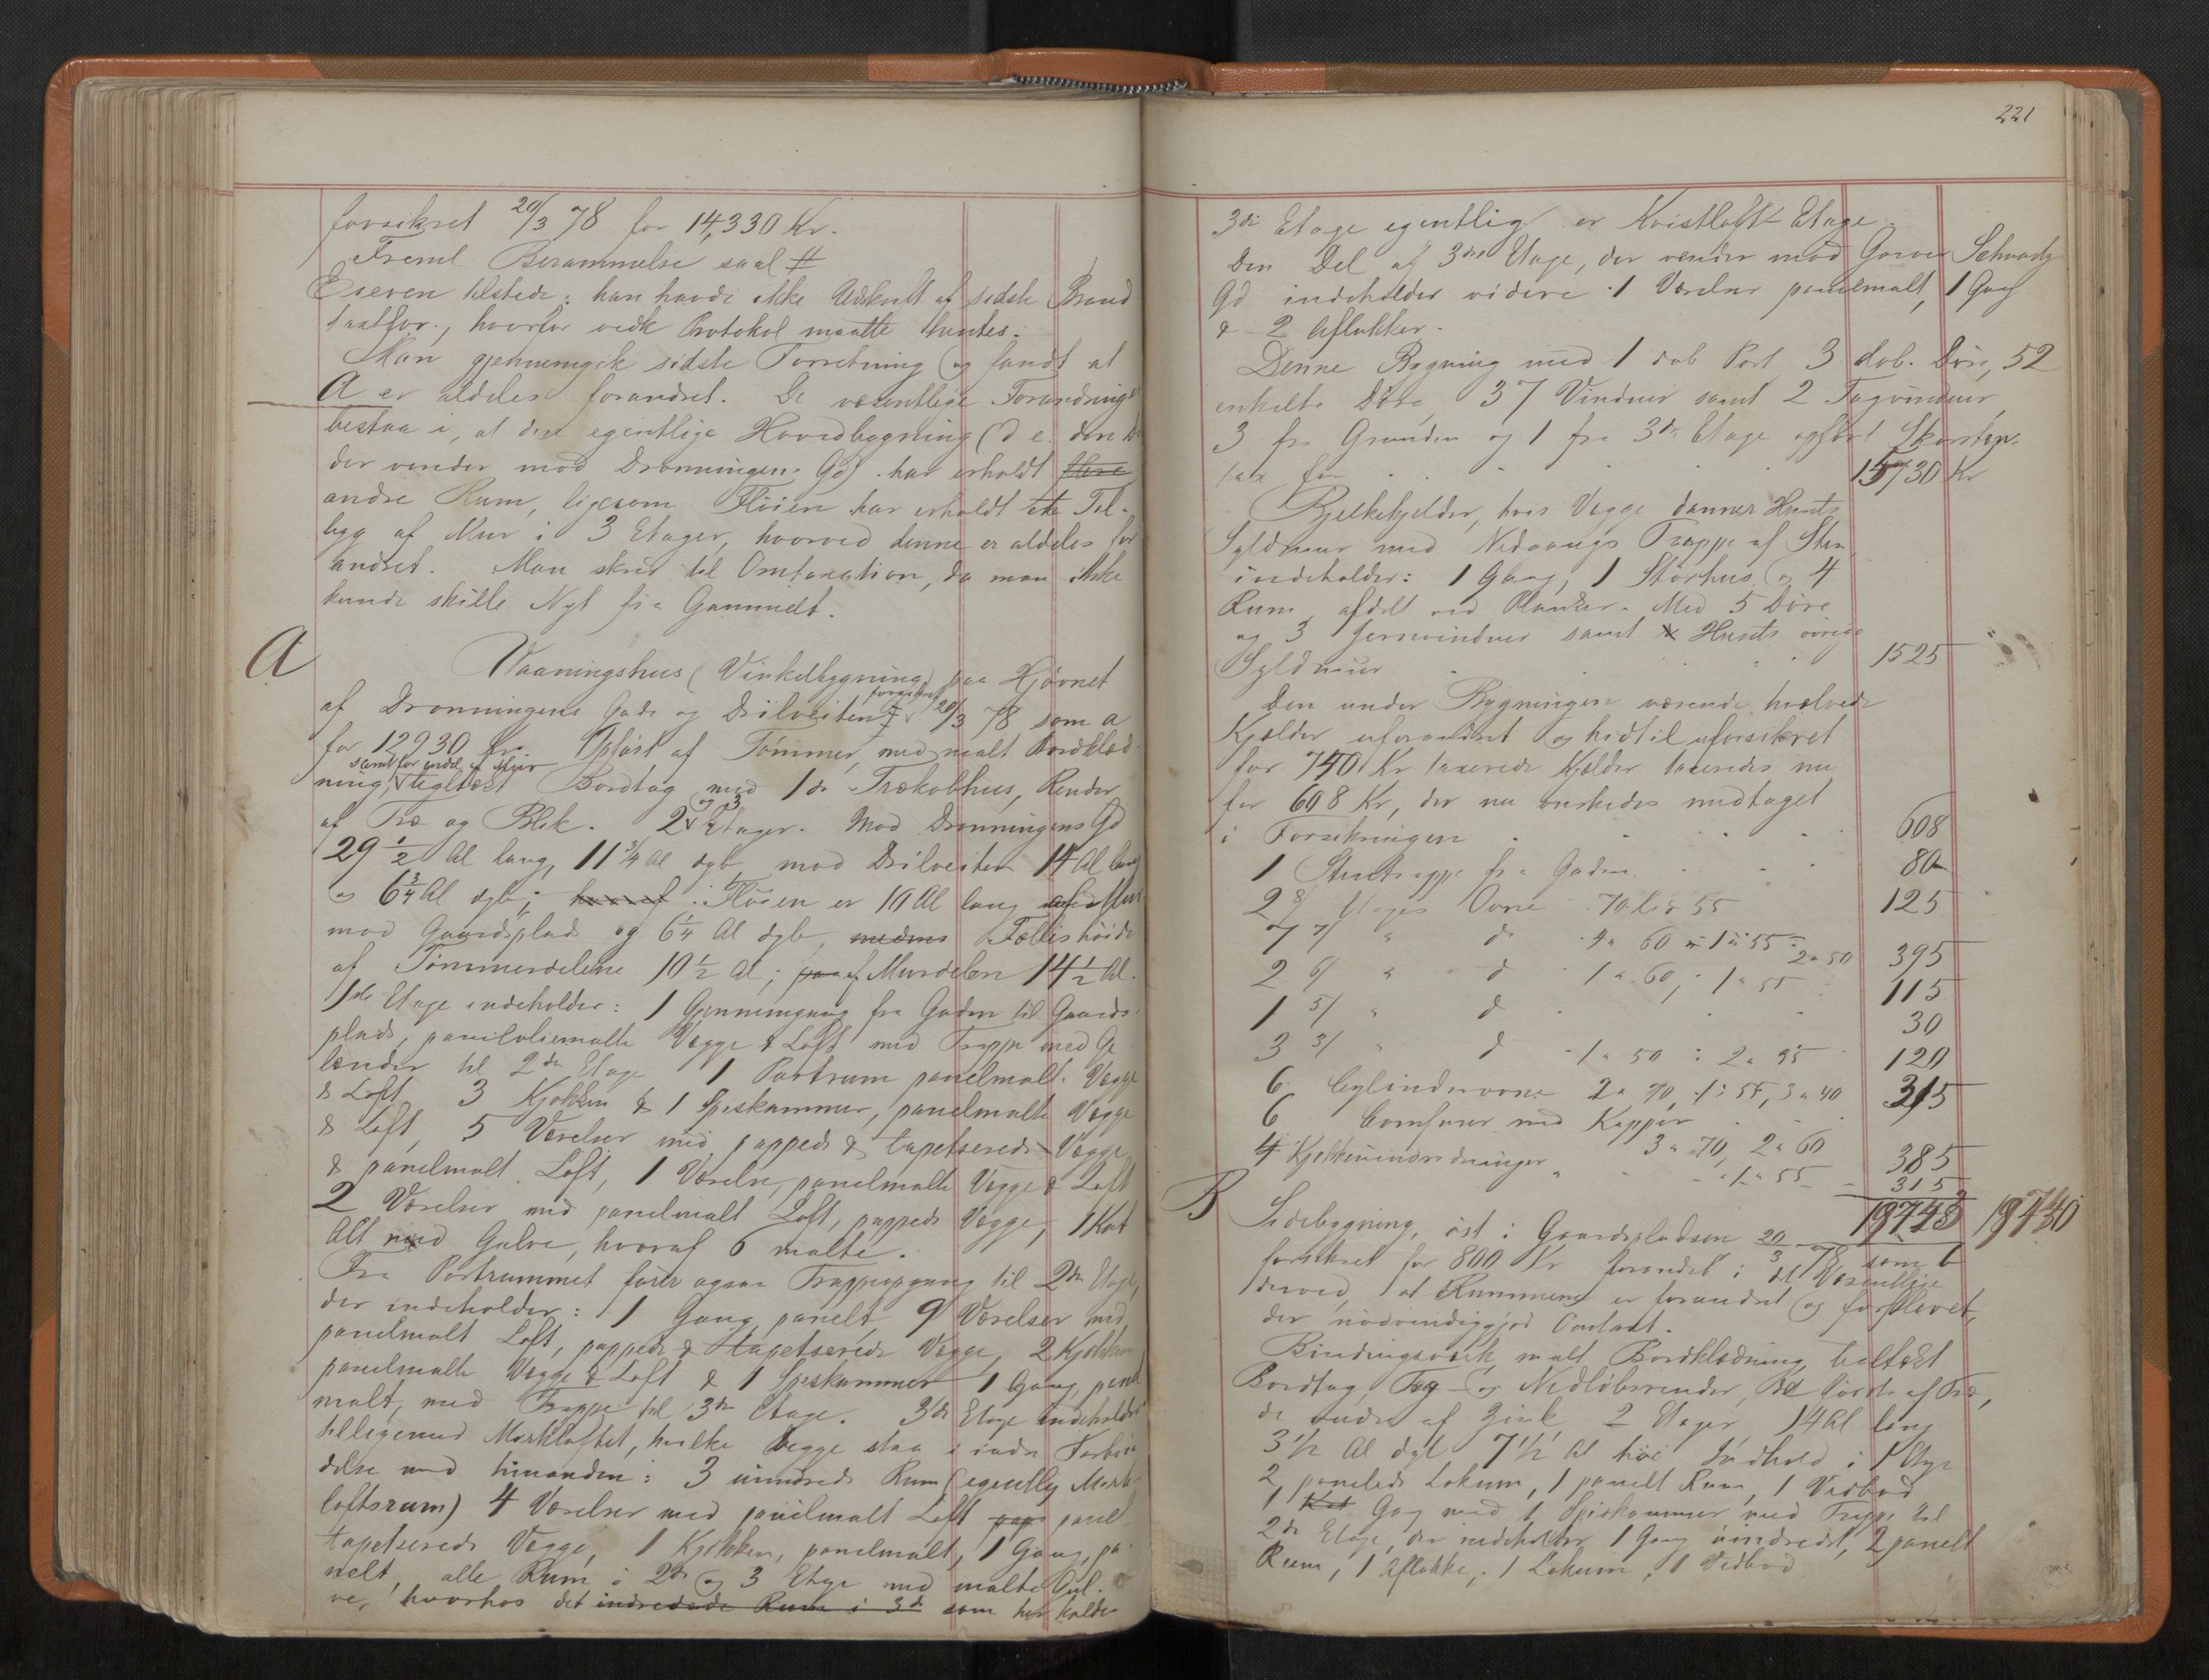 forsikret 20/3 78 for 14,330 Kr.
Freml. Berammelse saal #
Eieren tilstede; han havde ikke Udskrift af sidste Brand
taxtfor., hvorfor vedk Protokol maatte hentes.
Man gjennemgik sidste Forretning og fandt at
A er aldeles forandret. De væsentlige Forandringer
bestaa i, at den egentlige Hovedbygning (d e. den D
der vender mod Dronningens Gd) har erholdt flere
andre Rum, ligesom Fløien har erholdt et Til-
byg af Mur i 3 Etager, hvorved denne er aldeles for
andret. Man skred til Omtaxation, da man ikke
kunde skille Nyt fra Gammelt.
A
Vaaningshus (Vinkelbygning) paa Hjørnet
af Dronningens Gade og Drilveiten forsikret 20/3 78 som a
for 12930 Kr. Opført af Tømmer, med malt Bordklæd
ning, samt for endel af Mur tegltækt Bordtag med 1 do Trækobhus, Render
af Træ og Blik. 2 og 3 Etager. Mod Dronningens Gd
29 1/2 Al lang, 11 3/4 Al dyb mod Drilveiten 14 Al lang
og 6 3/4 Al dyb; hvoraf i Fløien er 10 Al lang af Mur
mod Gaardsplads og 6 1/4 Al dyb, medens Fælleshøide
af Tømmerdelene 10 1/2 Al; paa af Murdelen 14 1/2 Al.
1ste Etage indeholder: 1 Gjennemgang fra Gaden til Gaards
plads, paneloliemalte Vægge & Loft med Trappe med Ge
lænder til 2den Etage 1 Portrum panelmalt Vægge
& Loft 3 Kjøkken & 1 Spiskammer, panelmalte Vægge
& Loft, 5 Værelser med pappede & tapetserede Vægge
& panelmalt Loft, 1 Værelse, panelmalte Vægge & Loft
2 Værelser med panelmalt Loft, pappede Vægge, 1 Kot
Alt med Gulve, hvoraf 6 malte.
Fra Portrummet fører ogsaa Trappeopgang til 2den Etage,
der indeholder: 1 Gang panelt, 9 Værelser med
panelmalt Loft, pappede & tapetserede Vægge, 2 Kjøkken
panelmalte Vægge & Loft & 1 Spiskammer 1 Gang, panel
malt, med Trappe til 3die Etage. 3die Etage indeholder
tilligemed Mørkloftet, hvilke begge staa i indre Forbin
delse med hinanden: 3 uindrede Rum (egentlig Mørk
loftsrum) 4 Værelser med panelmalt Loft pap panel
tapetserede Vægge, 1 Kjøkken, panelmalt, 1 Gang, pa
nelt, alle Rum i 2den og 3 Etage med malte Gul-
ve, hvorhos det indredede Rum i 3die som her kaldes
221
3die Etage egentlig er Kvistloft Etage.
Den Del af 3die Etage, der vender mod Garver Schwartz
Gd indeholder videre 1 Værelse panelmalt, 1 Gang
& 2 Aflukker.
Denne Bygning med 1 dob Port 3 dob. Døre, 52
enkelte Døre, 37 Vinduer samt 2 Tagvinduer,
3 fra Grunden og 1 fra 3die Etage opført Skorsten
tax for 15730 Kr
Bjelkekjelder, hvis Vægge danner Husets
Syldmur med Nedgangs Trappe af Sten
indeholder: 1 Gang, 1 Størhus og 4
Rum, afdelt ved Planker. Med 5 Døre
og 3 Jernvinduer samt Husets øvrige
Syldmur 1525
Den under Bygningen værende hvælvede
Kjælder uforandret og hidtil uforsikret
for 740 Kr taxerede Kjælder taxeredes nu
for 608 Kr, der nu ønskedes medtaget
i Forsikringen 608
1 Stentrappe fra Gaden 80
2 8/ Etages Ovne 70 & 55 125
7 7/ " d 4 a 60 1 a 55 2 a 50 395
2 6/ " d 1 a 60, 1 a 55 115
1 5/ " d 30
3 3/ " d 1 a 50 2 a 35 120
6 Cylinderovne 2 a 70, 1 a 55, 3 a 40 315
6 Comfurer med Kapper 3 a 70, 2 a 60 1 a 55 385
4 Kjøkkenindredninger " 315
19743 19740
B
Sidebygning, øst i Gaardspladsen 20/3 78 som b
forsikret for 800 Kr forandret i det Væsentlige
derved, at Rummene er forandret og forfløvet,
der nødvendiggjød Omtaxt.
Bindingsværk, malt Bordklædning, teltækt
Bordtag, Tag- og Nedløbsrender, de første af Træ,
de andre af Zink 2 Etager 14 Al lang
3 1/2 Al dyb 7 1/2 Al høi Indhold i 1 Etage
2 panelede Lokum, 1 panelt Rum, 1 Vedbod
1 Kot Gang med 1 Spiskammer med Trappe til
2den Etage, der indeholder 1 Gang uindredet, 2 panelt
Rum, 1 Aflukke, 1 Lokum, 1 Vedbod